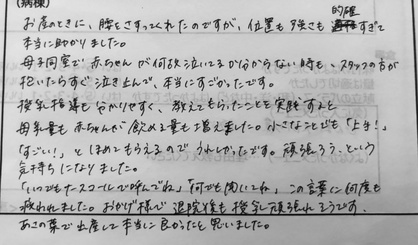 (病棟)
お産のときに、腰をさすってくれたのですが、位置も強さも的確すぎて
本当に助かりました。
母子同室で赤ちゃんが何故泣いてるか分からない時も、スタッフの方が
抱いたらすぐ泣き止んで、本当にすごかったです。
授乳指導も分かりやすく、教えてもらったことを実践すると
母乳量も赤ちゃんが飲める量も増えました。小さなことでも「上手!」
「すごい!」とほめてもらえるのでうれしかったです。頑張ろう、という
気持ちになりました。
「いつでもナースコールで呼んでね」「何でも聞いてね」この言葉に何度も
救われました。おかげ様で退院後も授乳頑張れそうです。
あさの葉で出産して本当に良かったと思いました。